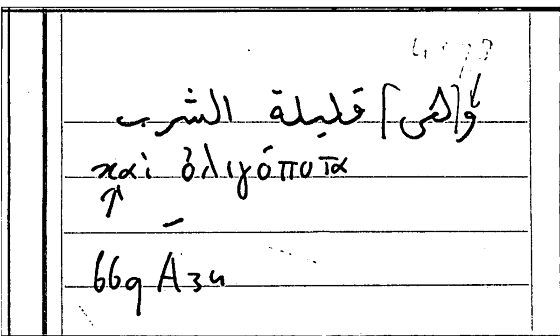 و[هى] قليلة الشرب
καὶ ὀλιγόποτα
669 A34